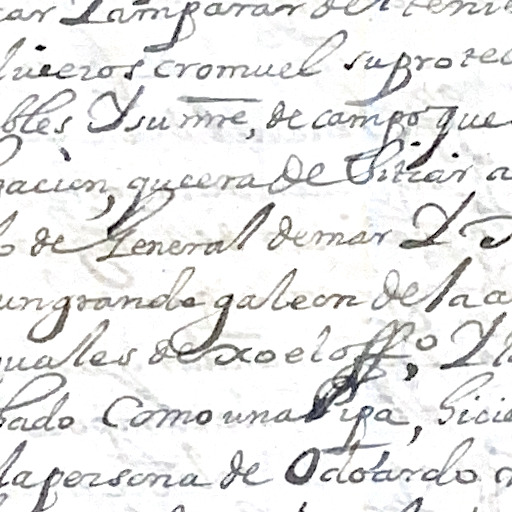 car Y amparar del teni
luceros cromuel su protec
bles Y su mre, de campo que
gacion, que era de Sitiar a
o de General de mar Y D
un grande galeon de la a
quales dexo el offo, Y l
bado Como una Pipa, hicie
la persona de Odoardo